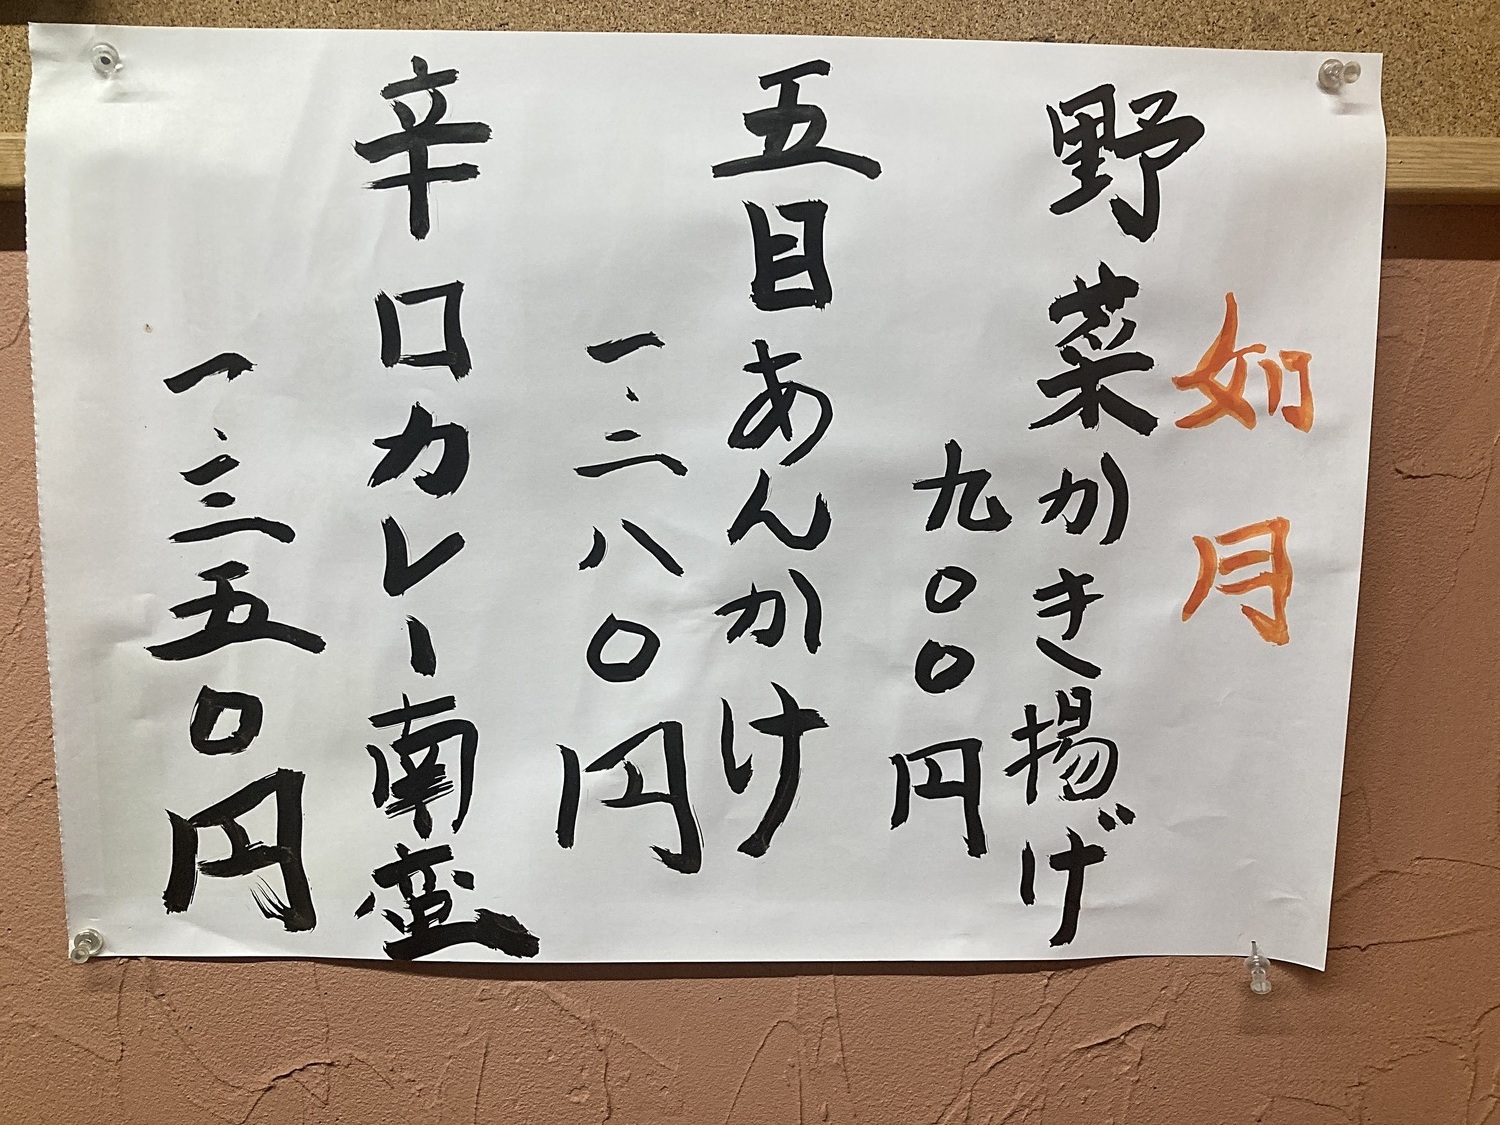 如月
野菜かき揚げ
九〇〇円
五目あんかけ
一、二八〇円
辛口カレー南蛮
一、三五〇円